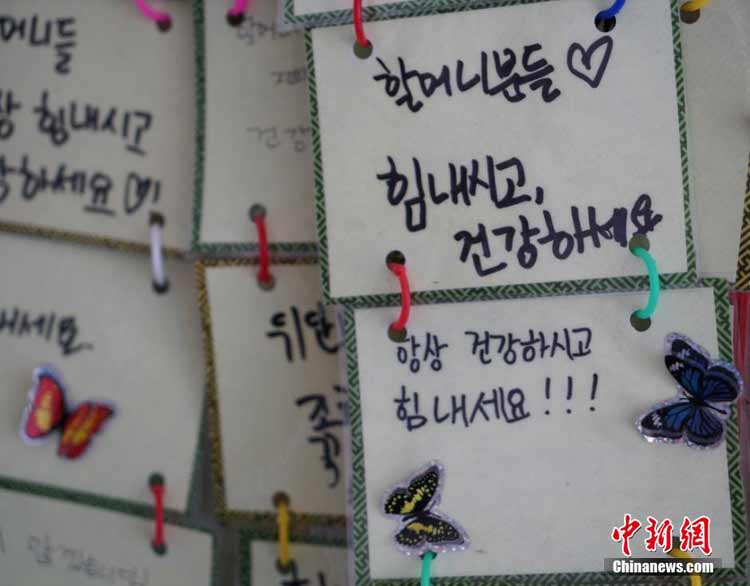 할머니분들 ♡
힘내시고,
건강하세요
항상 건강하시고
힘내세요!!!
머니들
힘내시고
하세요 ♡!
건강
위
中新网
Chinanews.com